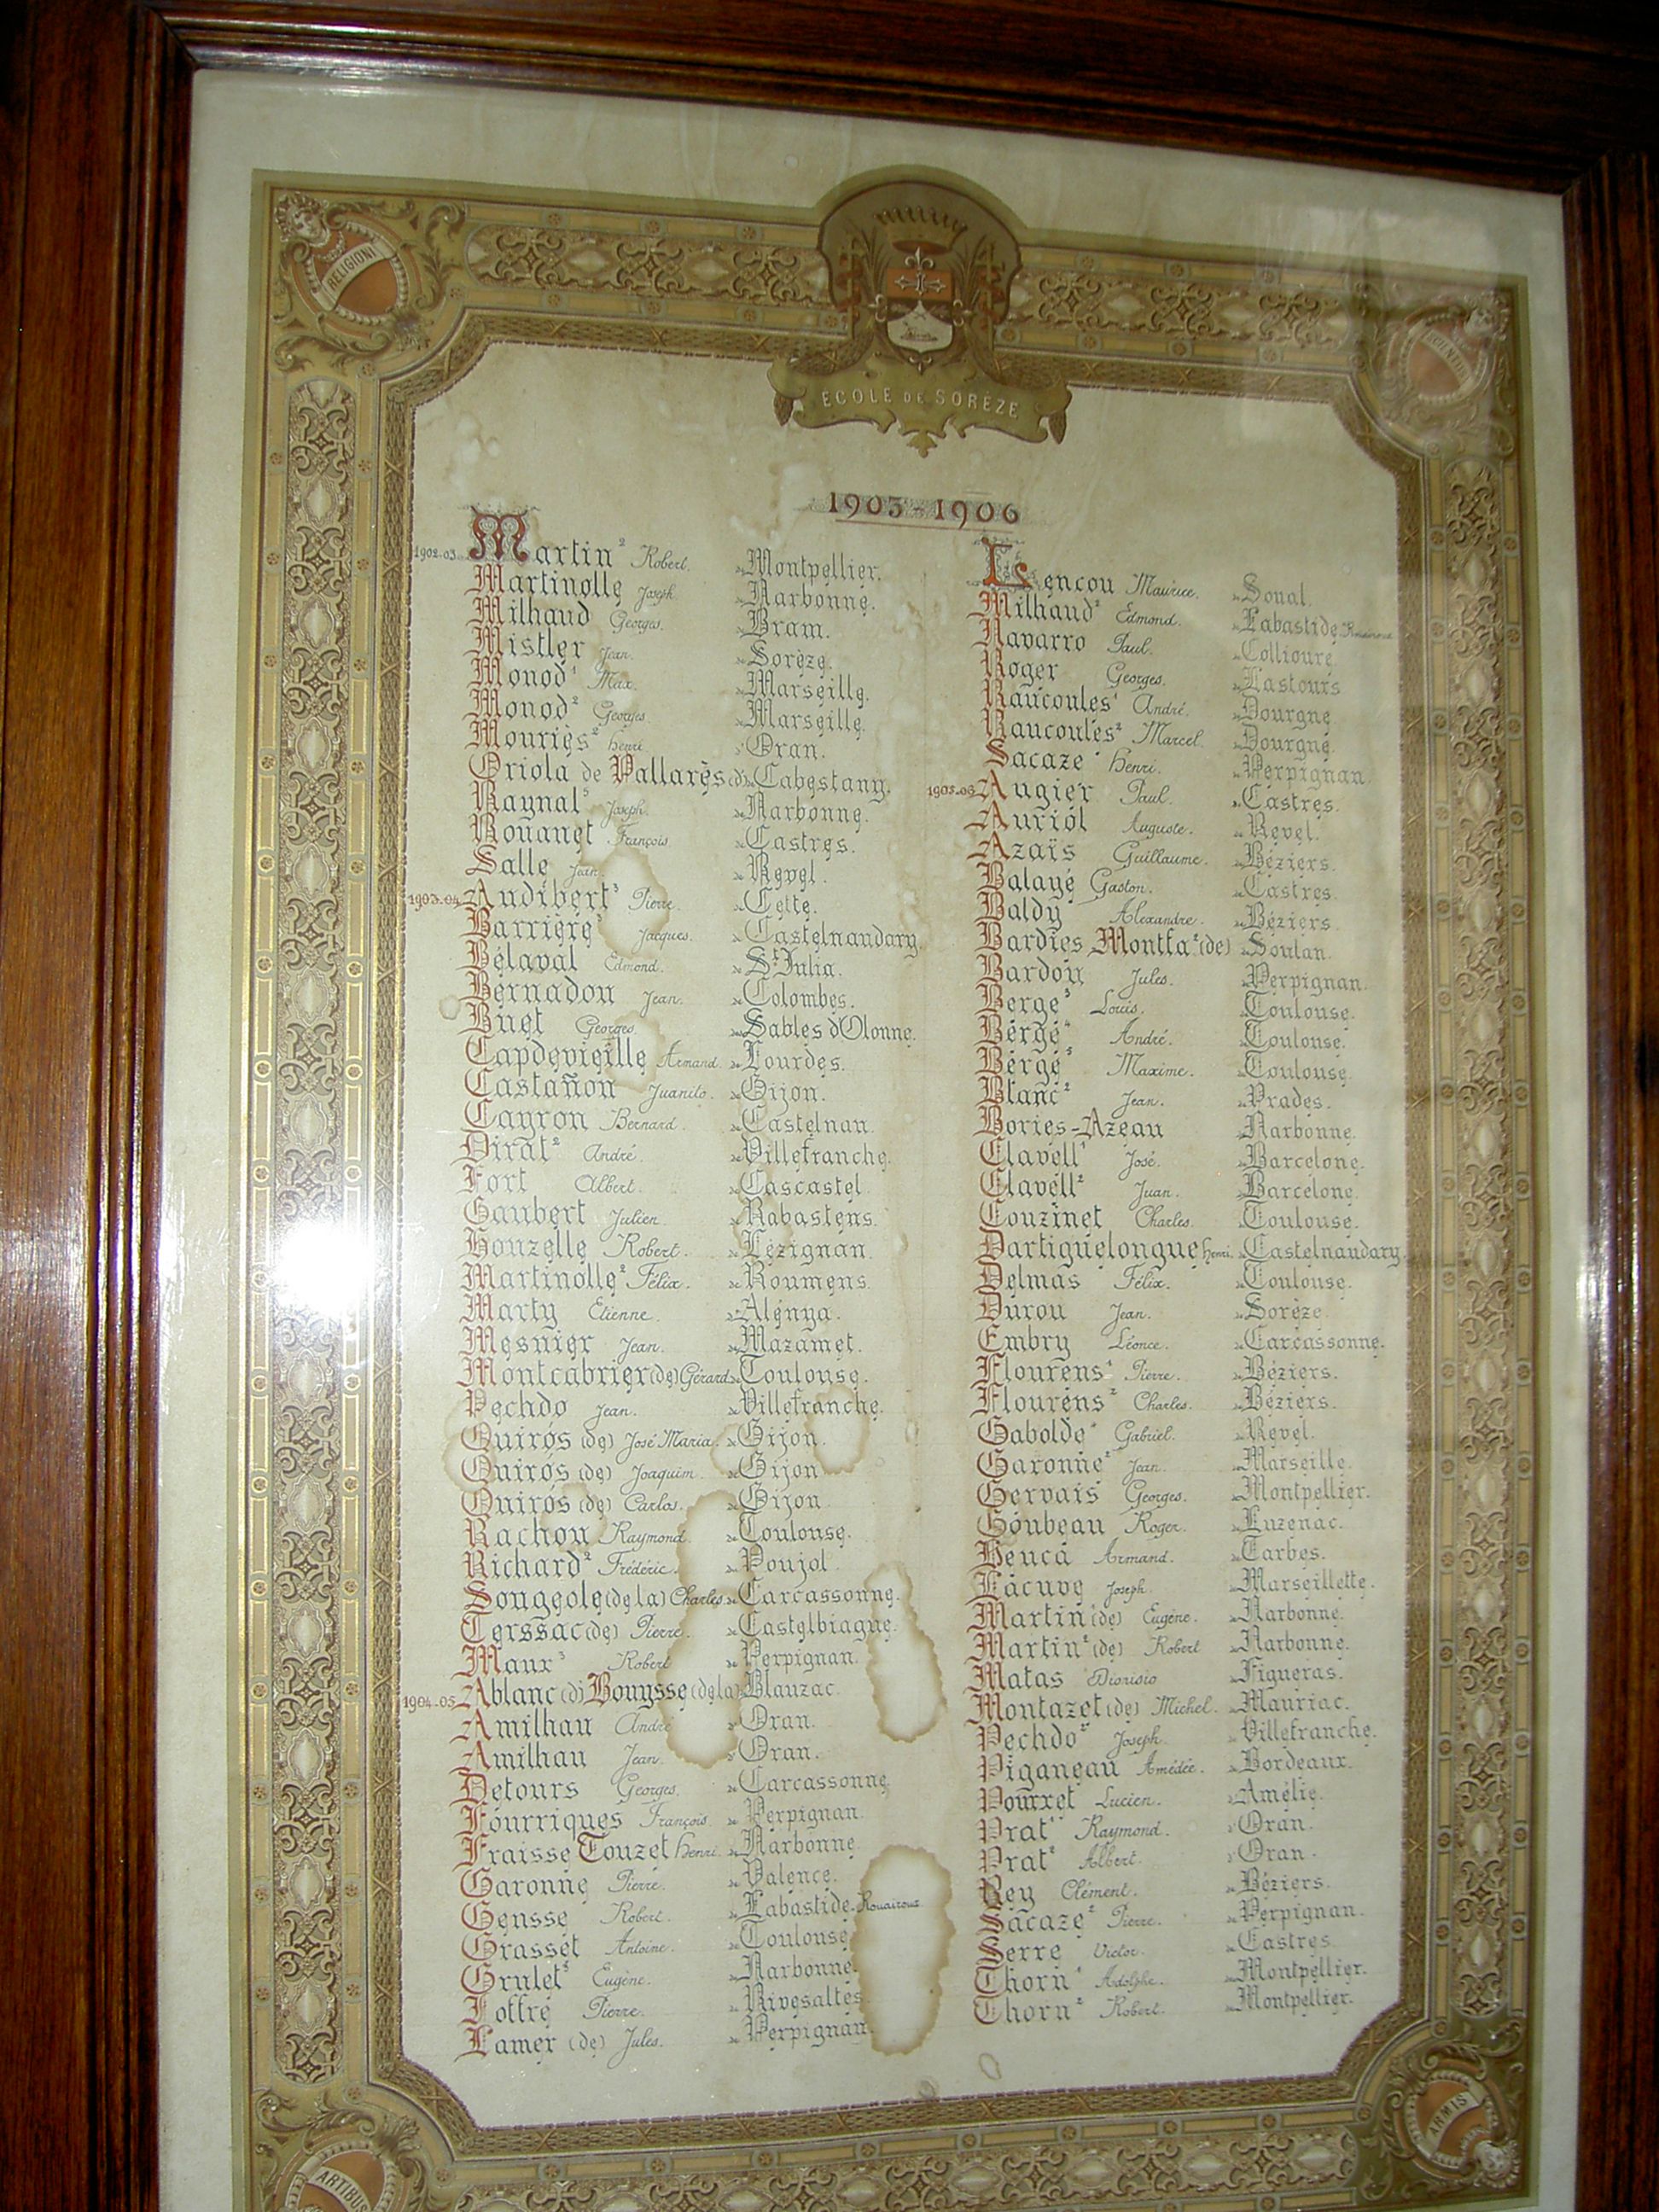 RELIGIONI
SCIENTIÆ
ÉCOLE DE SORÈZE
1903-1906
1902-03 Martin² Robert. de Montpellier.
Martinolle Joseph de Narbonne.
Milhaud Georges. de Bram.
Mistler Jean. de Sorèze.
Monod¹ Max. de Marseille.
Monod² Georges. de Marseille.
Mouriès² Henri. d'Oran.
Oriola de Pallarès (d') de Cabestany.
Raynal³ Joseph. de Narbonne.
Rouanet François. de Castres.
Salle Jean. de Revel.
1903-04 Audibert³ Pierre. de Cette.
Barrière³ Jacques. de Castelnaudary.
Bélaval Edmond. de St Julia.
Bernadou Jean. de Colombes.
Buet Georges. des Sables d'Olonne.
Capdevieille Armand. de Lourdes.
Castañon Juanito. de Gijon.
Cayron Bernard. de Castelnau.
Dirat² André. de Villefranche.
Fort Albert. de Cascastel.
Gaubert Julien. de Rabastens.
Houzelle Robert. de Lézignan.
Martinolle² Félix. de Roumens.
Marty Etienne. d'Alénya.
Mesnier Jean. de Mazamet.
Montcabrier (de) Gérard. de Toulouse.
Pechdo Jean. de Villefranche.
Quirós (de) José Maria. de Gijon.
Quirós (de) Joaquim. de Gijon
Quirós (de) Carlos. de Gijon
Rachou Raymond. de Toulouse.
Richard² Frédéric. de Poujol.
Sougeole (de la) Charles. de Carcassonne.
Terssac (de) Pierre. de Castelbiague.
Maux³ Robert de Perpignan.
1904-05 Ablanc (d') Bouysse (de la) de Blauzac.
Amilhau André d'Oran.
Amilhau Jean. d'Oran.
Detours Georges. de Carcassonne
Fourriques François. de Perpignan.
Fraisse Touzet Henri. de Narbonne
Garonne Pierre. de Valence.
Gensse Robert. de Labastide-Rouairoux
Grasset Antoine. de Toulouse
Grulet² Eugène. de Narbonne.
Joffre Pierre. de Rivesaltes
Lamer (de) Jules. de Perpignan.
Lencou Maurice. de Soual.
Milhaud² Edmond. de Labastide Rouairoux
Navarro Paul. de Collioure
Roger Georges. de Lastours
Raucoules¹ André. de Dourgne
Raucoules² Marcel. de Dourgne.
Sacaze¹ Henri. de Perpignan
1905-06 Augier Paul. de Castres.
Auriol Auguste. de Revel.
Azaïs Guillaume. de Béziers.
Balayé Gaston. de Castres.
Baldy Alexandre. de Béziers.
Bardies Montfa² (de) de Soulan.
Bardou Jules. de Perpignan.
Bergé³ Louis. de Toulouse.
Bergé⁴ André. de Toulouse.
Bergé⁵ Maxime. de Toulouse.
Blanc² Jean. de Prades.
Bories-Azeau de Narbonne.
Clavell¹ José. de Barcelone.
Clavell² Juan. de Barcelone.
Couzinet Charles. de Toulouse.
Dartiguelongue Henri. de Castelnaudary.
Delmas Félix. de Toulouse.
Durou Jean. de Sorèze
Embry Léonce. de Carcassonne.
Flourens¹ Pierre. de Béziers.
Flourens² Charles. de Béziers.
Gabolde⁴ Gabriel. de Revel.
Garonne² Jean. de Marseille.
Gervais Georges. de Montpellier.
Goubeau Roger. de Luzenac.
Heuca Armand. de Tarbes.
Lacuve Joseph. de Marseillette.
Martin¹ (de) Eugène. de Narbonne.
Martin² (de) Robert de Narbonne.
Matas Dionisio de Figueras.
Montazet (de) Michel. de Mauriac.
Pechdo² Joseph. de Villefranche.
Piganeau Amédée. de Bordeaux.
Pourxet Lucien. d'Amélie.
Prat¹ Raymond. d'Oran.
Prat² Albert. d'Oran.
Rey Clément. de Béziers.
Sacaze² Pierre. de Perpignan.
Serre Victor. de Castres
Thorn¹ Adolphe. de Montpellier.
Thorn² Robert. de Montpellier.
ARTIBUS
ARMIS